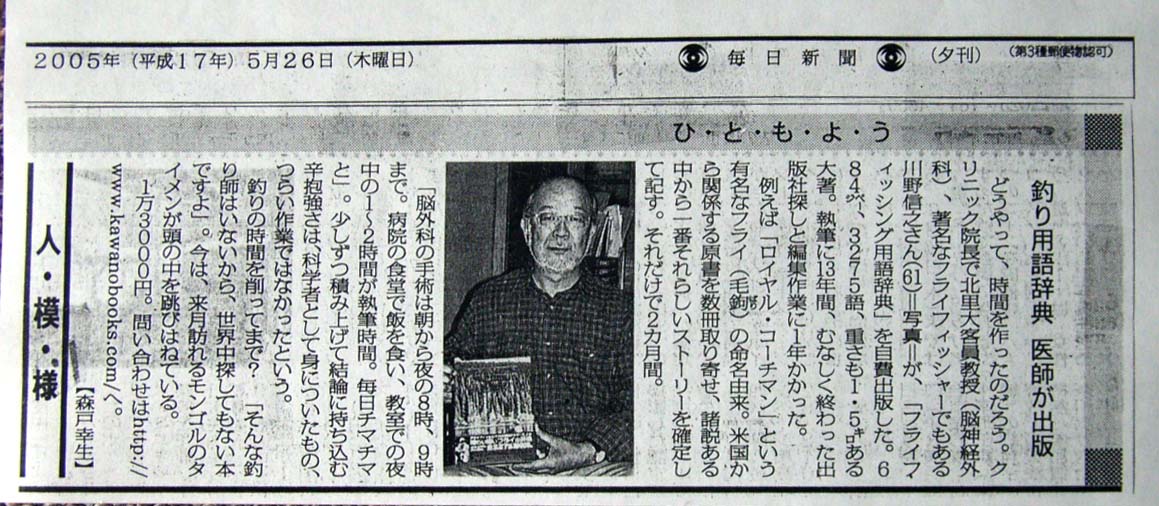 2005年(平成17年)5月26日(木曜日)
毎日新聞
(夕刊)
(第3種郵便物認可)
ひ・と・も・よ・う
釣り用語辞典 医師が出版
どうやって、時間を作ったのだろう。ク
リニック院長で北里大客員教授(脳神経外
科)、著名なフライフィッシャーでもある
川野信之さん(61)=写真=が、「フライフ
ィッシング用語辞典」を自費出版した。6
84㌻、3275語、重さも1・5㌔ある
大著。執筆に13年間、むなしく終わった出
版社探しと編集作業に1年かかった。
例えば「ロイヤル・コーチマン」という
有名なフライ(毛鉤)の命名由来。米国か
ら関係する原書を数冊取り寄せ、諸説ある
中から一番それらしいストーリーを確定し
て記す。それだけで2カ月間。
「脳外科の手術は朝から夜の8時、9時
まで。病院の食堂で飯を食い、教室での夜
中の1〜2時間が執筆時間。毎日チマチマ
と」。少しずつ積み上げて結論に持ち込む
辛抱強さは、科学者として身についたもの、
つらい作業ではなかったという。
釣りの時間を削ってまで?「そんな釣
り師はいないから、世界中探してもない本
ですよ」。今は、来月訪れるモンゴルのタ
イメンが頭の中を跳びはねている。
1万3000円。問い合わせはhttp://
www.kawanobooks.com/へ。
【森戸幸生】
人・模・様